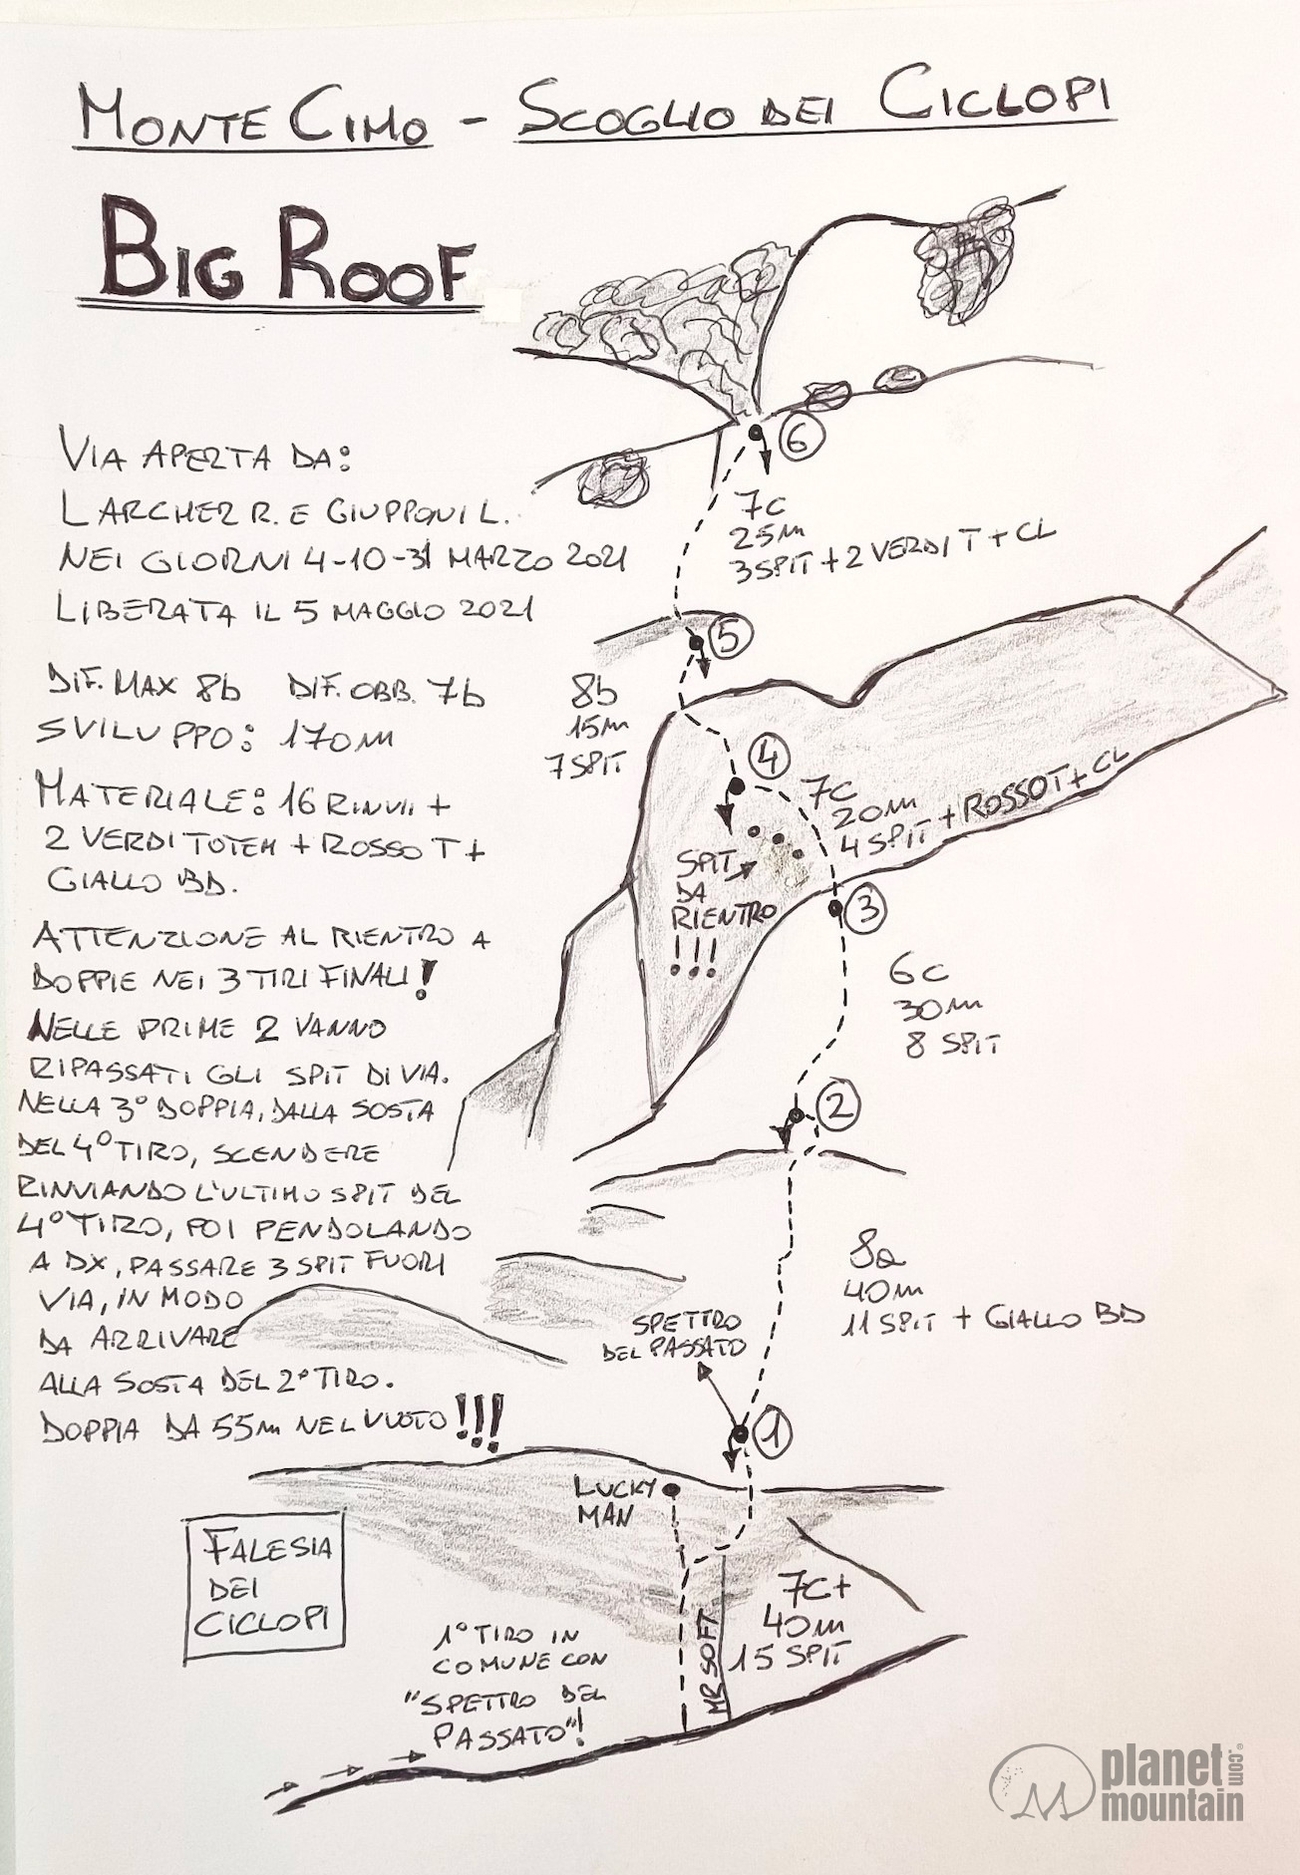 MONTE CIMO - SCOGLIO DEI CICLOPI
BIG ROOF
VIA APERTA DA:
LARCHER R. E GIUPPONI L.
NEI GIORNI 4-10-31 MARZO 2021
LIBERATA IL 5 MAGGIO 2021
DIF. MAX 8b DIF. OBB. 7b
SVILUPPO: 170m
MATERIALE: 16 RINVII +
2 VERDI TOTEM + ROSSO T +
GIALLO BD.
ATTENZIONE AL RIENTRO A
DOPPIE NEI 3 TIRI FINALI!
NELLE PRIME 2 VANNO
RIPASSATI GLI SPIT DI VIA.
NELLA 3° DOPPIA, DALLA SOSTA
DEL 4° TIRO, SCENDERE
RINVIANDO L'ULTIMO SPIT DEL
4° TIRO, POI PENDOLANDO
A DX, PASSARE 3 SPIT FUORI
VIA, IN MODO
DA ARRIVARE
ALLA SOSTA DEL 2° TIRO.
DOPPIA DA 55m NEL VUOTO!!!
6
7c
25m
3 SPIT + 2 VERDI T + CL
5
8b
15m
7 SPIT
4
7c
20m
4 SPIT + ROSSO T + CL
SPIT
DA
RIENTRO
!!!
3
6c
30m
8 SPIT
2
8a
40m
11 SPIT + GIALLO BD
SPETTRO
DEL PASSATO
1
LUCKY
MAN
FALESIA
DEI
CICLOPI
7c+
40m
15 SPIT
MR SOFT
1° TIRO IN
COMUNE CON
"SPETTRO DEL
PASSATO"!
planet
mountain
.com